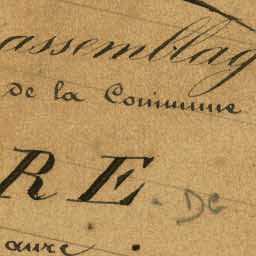 assemblag
de la Commune
RE. De
aure.